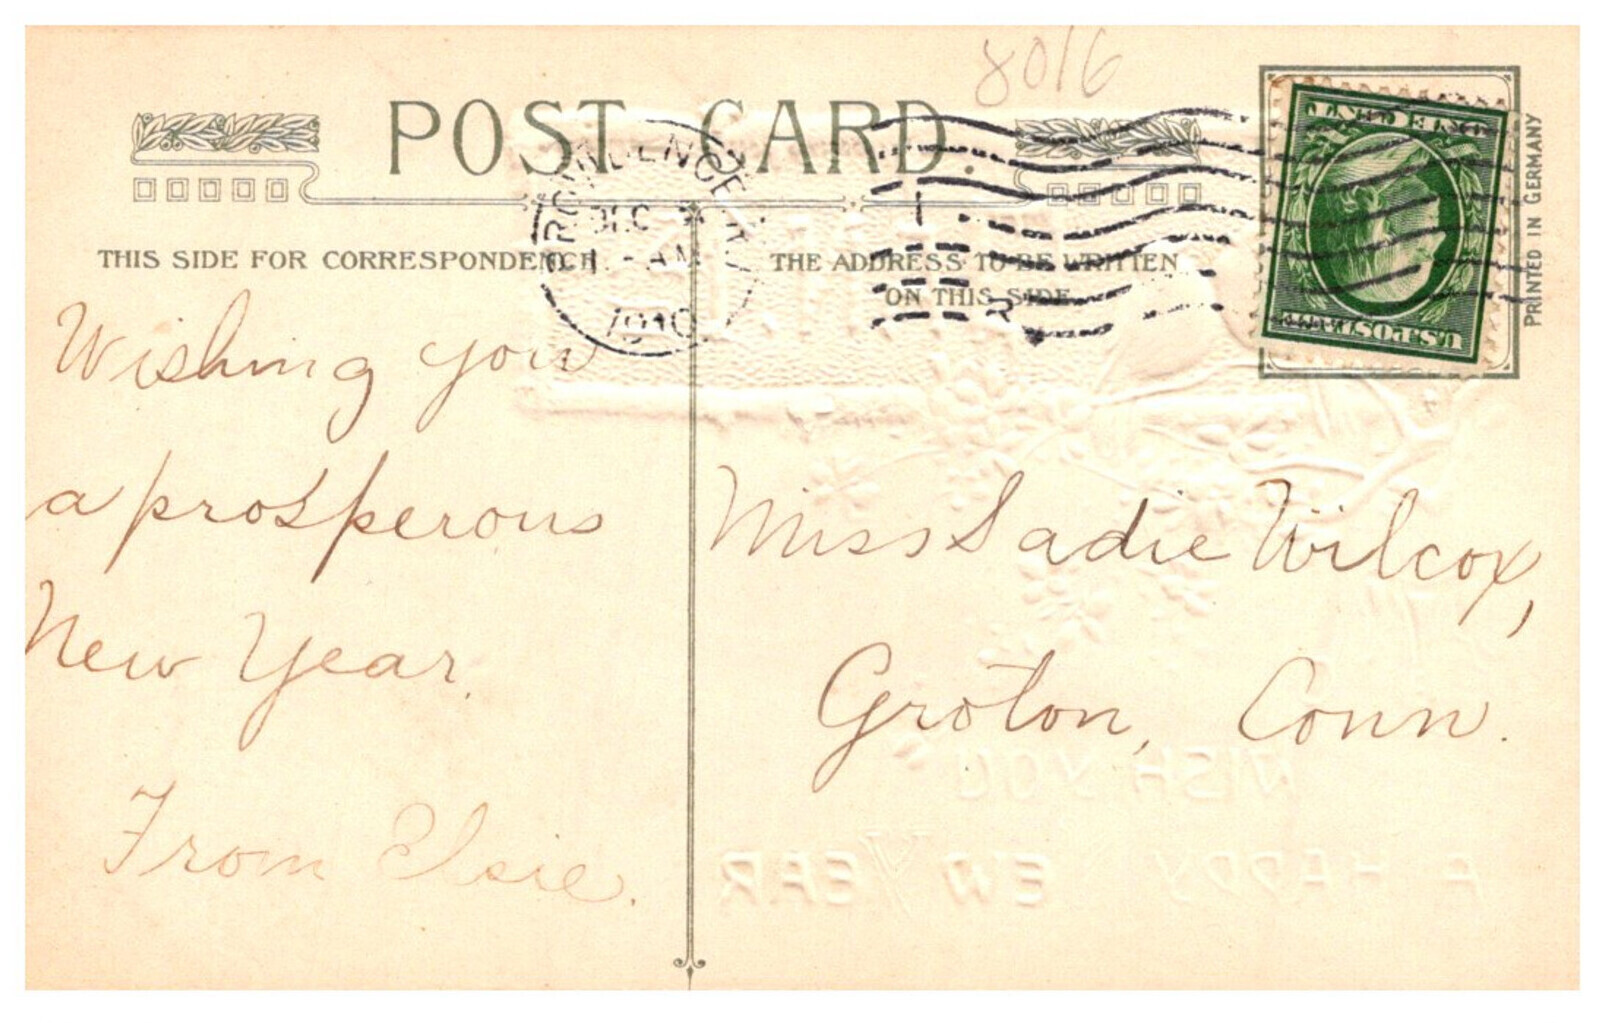 8016
POST CARD.
THIS SIDE FOR CORRESPONDENCE
THE ADDRESS TO BE WRITTEN
ON THIS SIDE
PROVIDENCE, R.I.
DEC
AM
1910
ONE CENT
U.S. POSTAGE
PRINTED IN GERMANY
Wishing you
a prosperous
New Year.
From Elsie.
Miss Sadie Wilcox,
Groton, Conn.
WISH YOU
A HAPPY NEW YEAR